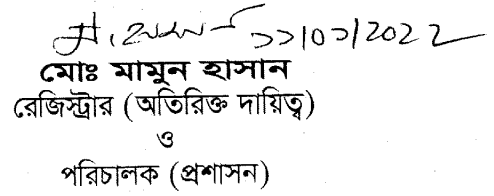 ১১/০১/2022
মোঃ মামুন হাসান
রেজিস্ট্রার (অতিরিক্ত দায়িত্ব)
ও
পরিচালক (প্রশাসন)